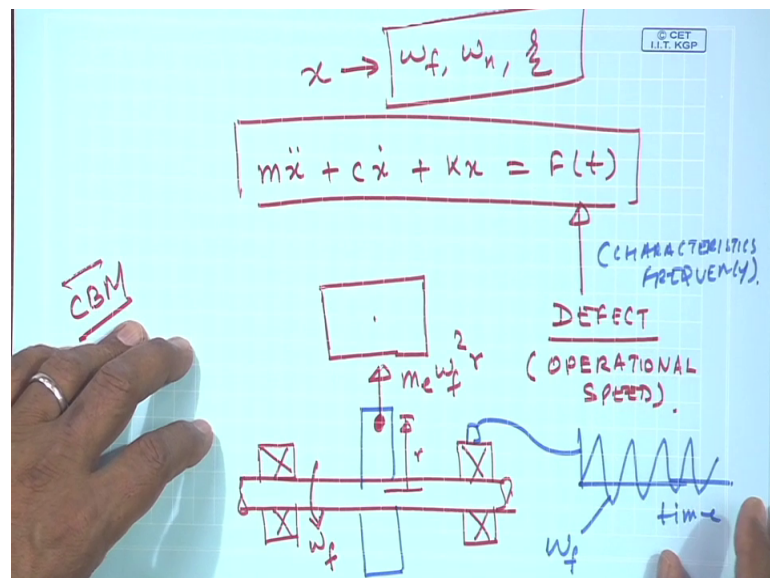 © CET
I.I.T. KGP
x → ω_f, ω_n, ξ
mẍ + cẋ + Kx = F(t)
(CHARACTERISTICS
FREQUENCY).
CBM
DEFECT
(OPERATIONAL
SPEED).
m_e ω_f² r
r
ω_f
time
ω_f